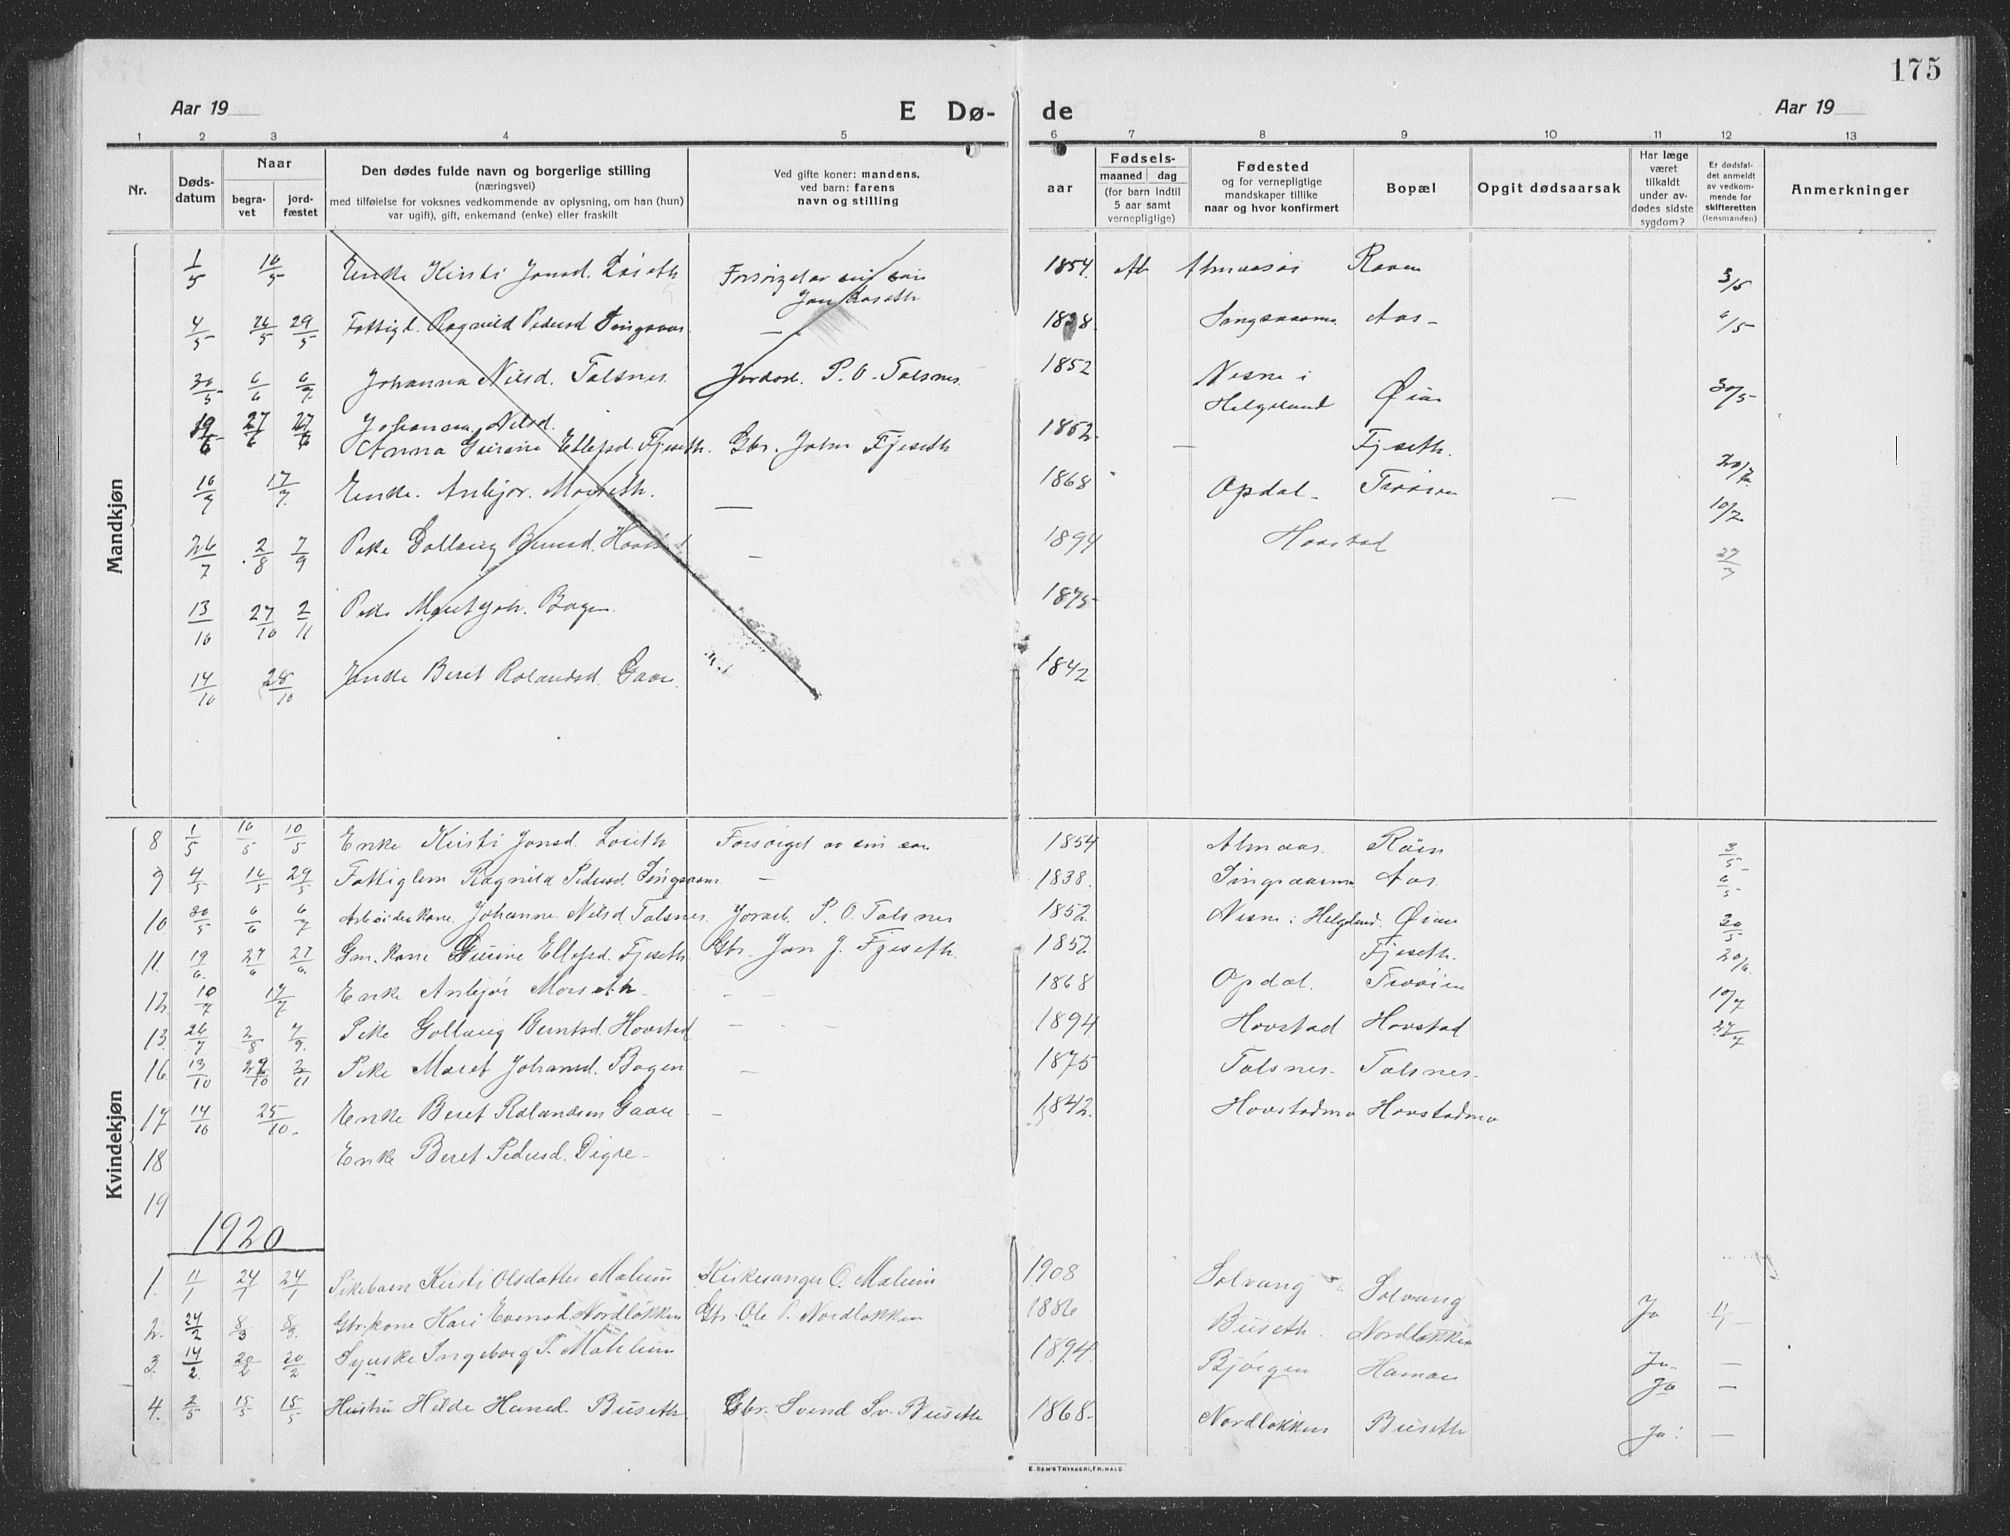 175
Aar 19 E Dø- de Aar 19
1 2 3 4 5 6 7 8 9 10 11 12 13
Nr.
Døds-
datum
Naar
begra-
vet
jord-
fæstet
Den dødes fulde navn og borgerlige stilling
(næringsvei)
med tilføielse for voksnes vedkommende av oplysning, om han (hun)
var ugift), gift, enkemand (enke) eller fraskilt
Ved gifte koner: mandens,
ved barn: farens
navn og stilling
aar
Fødsels-
maaned dag
(for barn indtil
5 aar samt
vernepligtige)
Fødested
og for vernepligtige
mandskaper tillike
naar og hvor konfirmert
Bopæl
Opgit dødsaarsak
Har læge
været
tilkaldt
under av-
dødes sidste
sygdom?
Er dødsfal-
det anmeldt
av vedkom-
mende for
skifteretten
(lensmanden)
Anmerkninger
Mandkjøn
1/5 16/5 Enke Kirsti Jonsd. Loseth Forsørget av sin søn 1854 3/5
Jon Loseth
4/5 26/5 29/5 Fattigl. Ragnild Pedersd Singsaas — 1838. Singsaasmo Aas - 6/5
30/5 6/6 6/7 Johanna Nilsd. Talsnes Jordarb. P. O. Talsnes. 1852 Nesne i
Helgeland Øian 30/5
Johanna Nilsd.
19/6 27/6 27/6 Anna Guruine Ellefsd. Fjeseth. Gbr. John Fjeseth 1852. — Fjeseth.
10/7 17/7 Enke. Anbjør. Moseth. — 1868 Opdal - Trøøien — 10/7
26/7 2/8 7/9 Pike Gollaug Berntsd. Hovstad — 1894 Hovstad
13/10 27/10 2/11 Pike Maret Joh. Bogen. 1875
14/10 28/10 Enke Beret Rolandsd. Gaare. 1842
Kvindekjøn
8 1/5 10/5 10/5 Enke Kirsti Jonsd. Loseth Forsørget av sin søn 1854 Almaas. Røen 3/5
9 4/5 16/5 29/5 Fattiglem Ragnild Pedersd. Singsaas — 1838. Singsaasmo Aas 6/5
10 30/5 6/6 6/7 Arbeiderkone. Johanne Nilsd Talsnes. Jorarb. P. O. Talsnes 1852 Nesne i Helgeland. Øian 30/5
11. 19/6. 27/6 27/6 Gm. kone Guruine Ellefsd. Fjeseth. Gbr. Jon J. Fjeseth. 1852. Fjeseth. 20/6
12 10/7 17/7 Enke Anbjør Moseth - - - 1868 Opdal. Trøøien 10/7
13. 26/7 2/8 7/9. Pike Gollaug Berntsd. Hovstad - - - 1894 Hovstad Hovstad 27/7
16. 13/10 27/10 2/11 Pike Maret Johansd. Bogen — 1875 Talsnes. Talsnes.
17 14/10 25/10. Enke Beret Rolandsen Gaare - 1842. Hovstadmo Hovstadmo
18 Enke Beret Pedersd. Digre -
19
1920
1. 11/1 24/1 24/1 Pikebarn Kirsti Olsdatter Malum Kirkesanger O. Malum 1908 Solvang Solvang
2. 24/2 8/3 8/3. Gbr.kone Kari Evensd. Nordløkken Gbr. Ole P. Nordløkken 1886 Buseth. Nordløkken Ja
3. 14/2. 20/2 20/2 Ingeborg P. Mahlum 1894. Bjørgen Ja - —
Ja —
4. 2/5 15/5 15/5 Hustru Hilde Hansd. Buseth. Gbr. Svend Sv. Buseth 1868. Nordløkken Buseth Ja: —
E. SEM'S TRYKKERI, FR.HALD